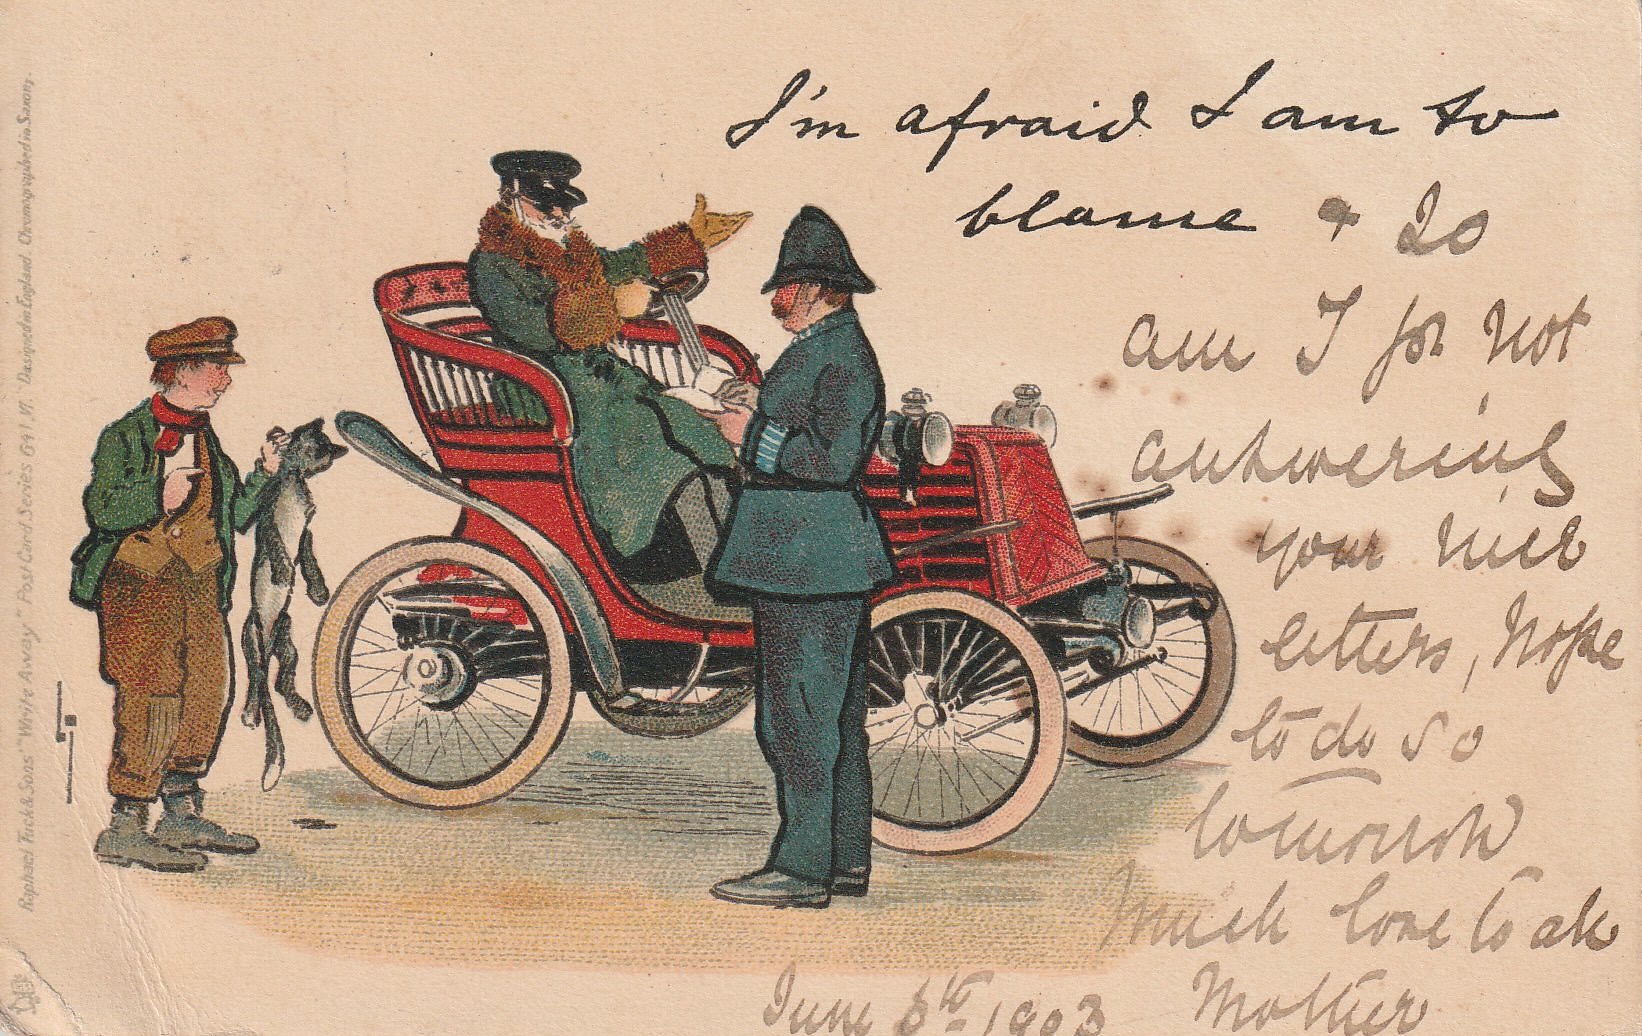 I'm afraid I am to
blame & So
am I for not
answering
your nice
letters, hope
to do so
tomorrow
Much love to all
Mother
June 1903
Raphael Tuck & Sons "Write Away" Post Card Series 641. VI. Designed in England. Chromographed in Saxony.